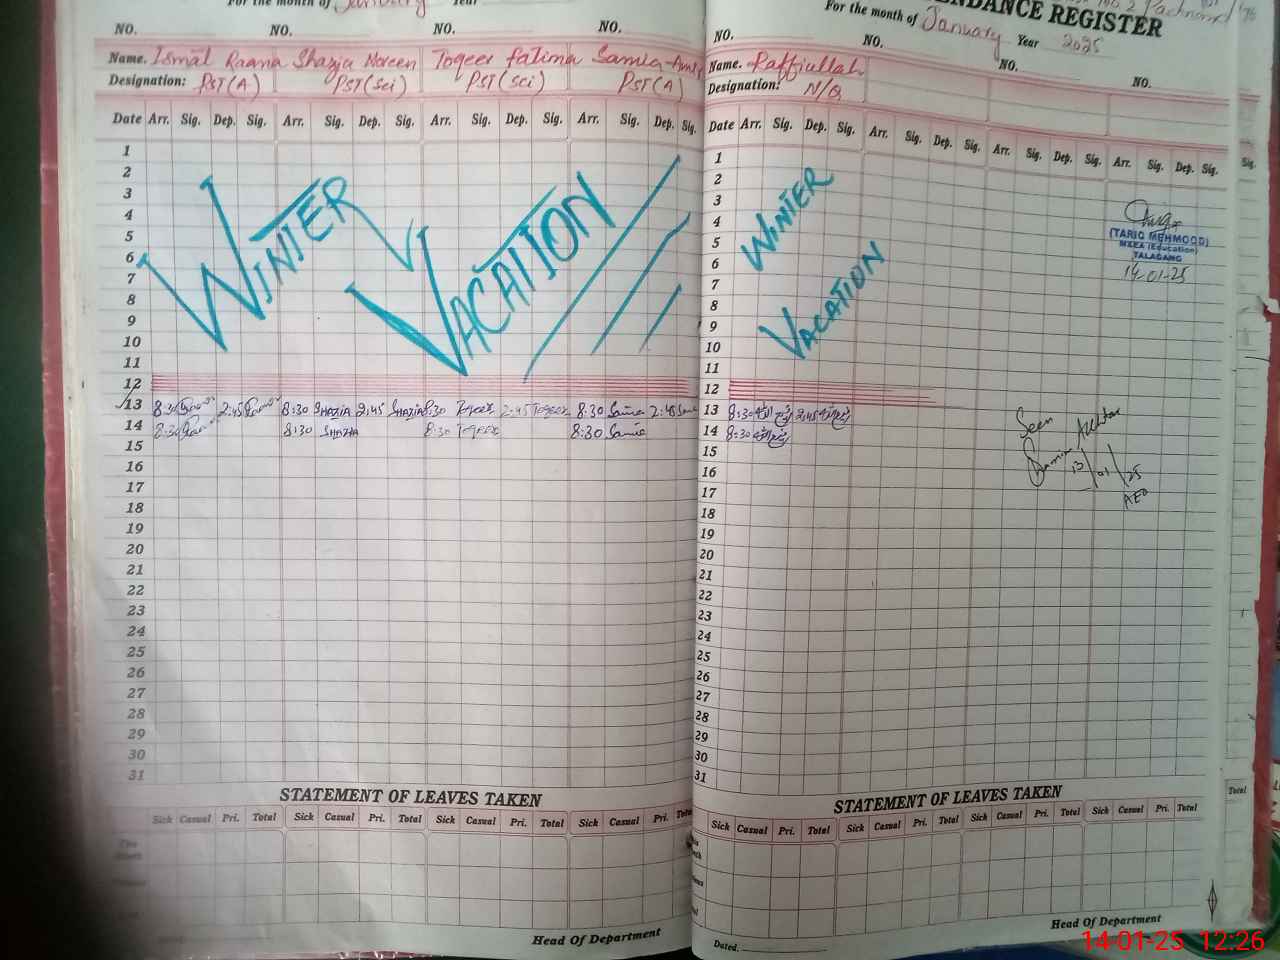 For the month of January Year
NO. NO. NO. NO.
Name. Ismat Raana Shazia Noreen Toqeer Fatima Samia
Designation: PST(A) PST(Sci) PST(Sci) PST(A)
Date Arr. Sig. Dep. Sig. Arr. Sig. Dep. Sig. Arr. Sig. Dep. Sig. Arr. Sig. Dep. Sig.
1
2
3
4
5
6
7
8
9
10
11
12
WINTER VACATION
13 8:30 2:45 8:30 SHAZIA 2:45 SHAZIA 8:30 Toqeer 2:45 Toqeer 8:30 Samia 2:45
14 8:30 8:30 SHAZIA 8:30 Toqeer 8:30 Samia
15
16
17
18
19
20
21
22
23
24
25
26
27
28
29
30
31
STATEMENT OF LEAVES TAKEN
Sick Casual Pri. Total Sick Casual Pri. Total Sick Casual Pri. Total Sick Casual Pri. Total
Head Of Department
ATTENDANCE REGISTER
For the month of January Year 2025
NO. NO. NO. NO.
Name. Raffiullah
Designation: N/Q
Date Arr. Sig. Dep. Sig. Arr. Sig. Dep. Sig. Arr. Sig. Dep. Sig. Arr. Sig. Dep. Sig.
1
2
3
4
5
6
7
8
9
10
11
12
WINTER
VACATION
(TARIQ MEHMOOD)
M&EA (Education)
TALAGANG
14-01-25
13 8:30 2:45
14 8:30
Seen
Akhtar
13/01/25
AEO
15
16
17
18
19
20
21
22
23
24
25
26
27
28
29
30
31
STATEMENT OF LEAVES TAKEN
Sick Casual Pri. Total Sick Casual Pri. Total Sick Casual Pri. Total Sick Casual Pri. Total
Head Of Department
Dated.
Sig.
Total
14-01-25 12:26